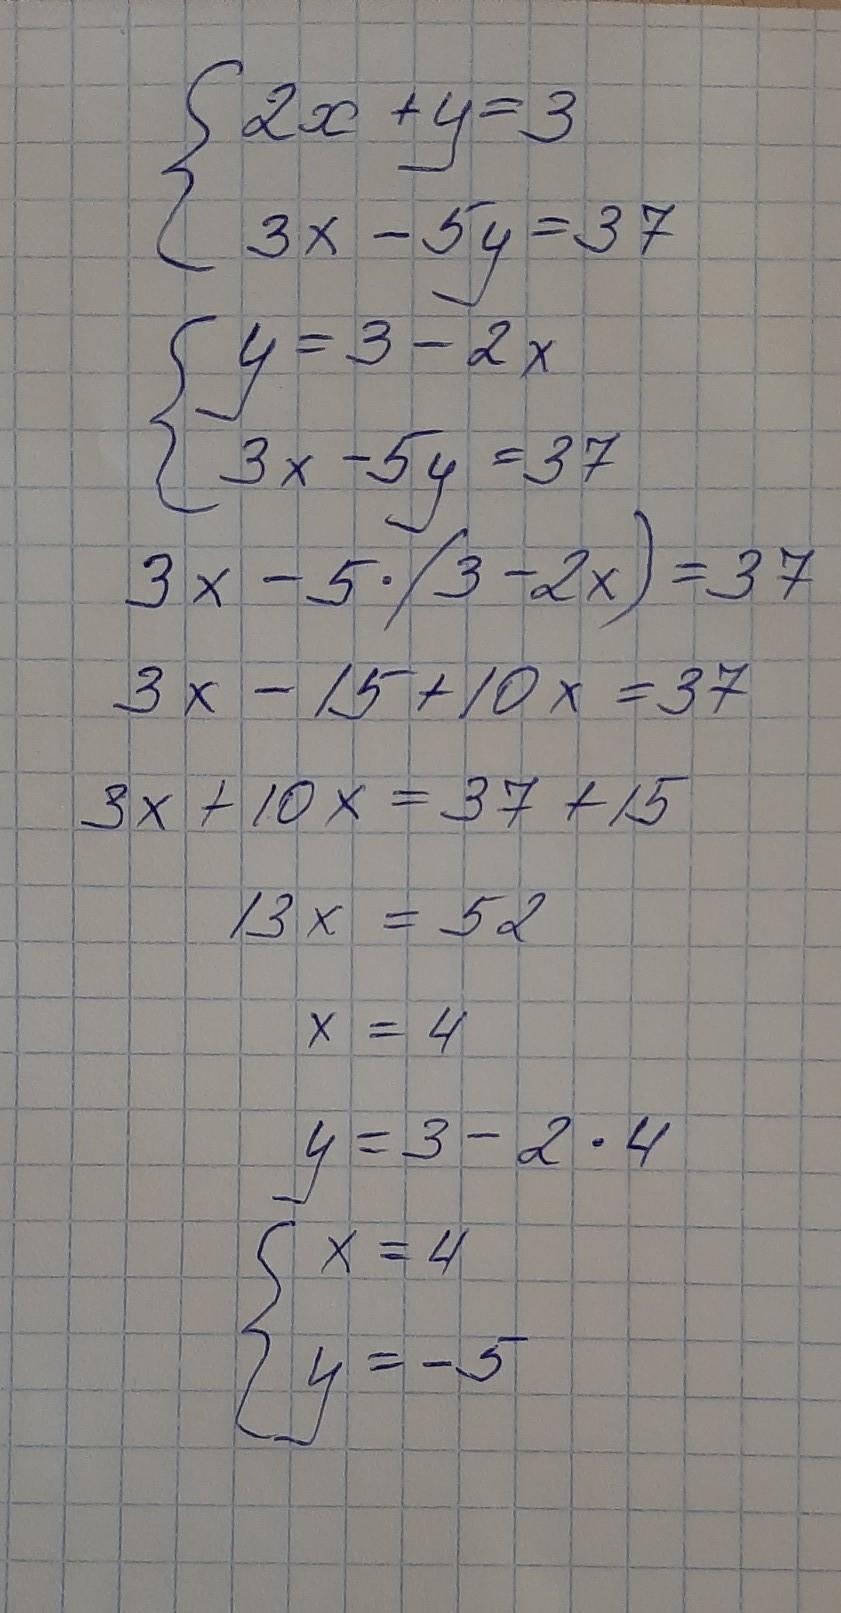 2x + y = 3
3x - 5y = 37
y = 3 - 2x
3x - 5y = 37
3x - 5 · (3 - 2x) = 37
3x - 15 + 10x = 37
3x + 10x = 37 + 15
13x = 52
x = 4
y = 3 - 2 · 4
x = 4
y = -5